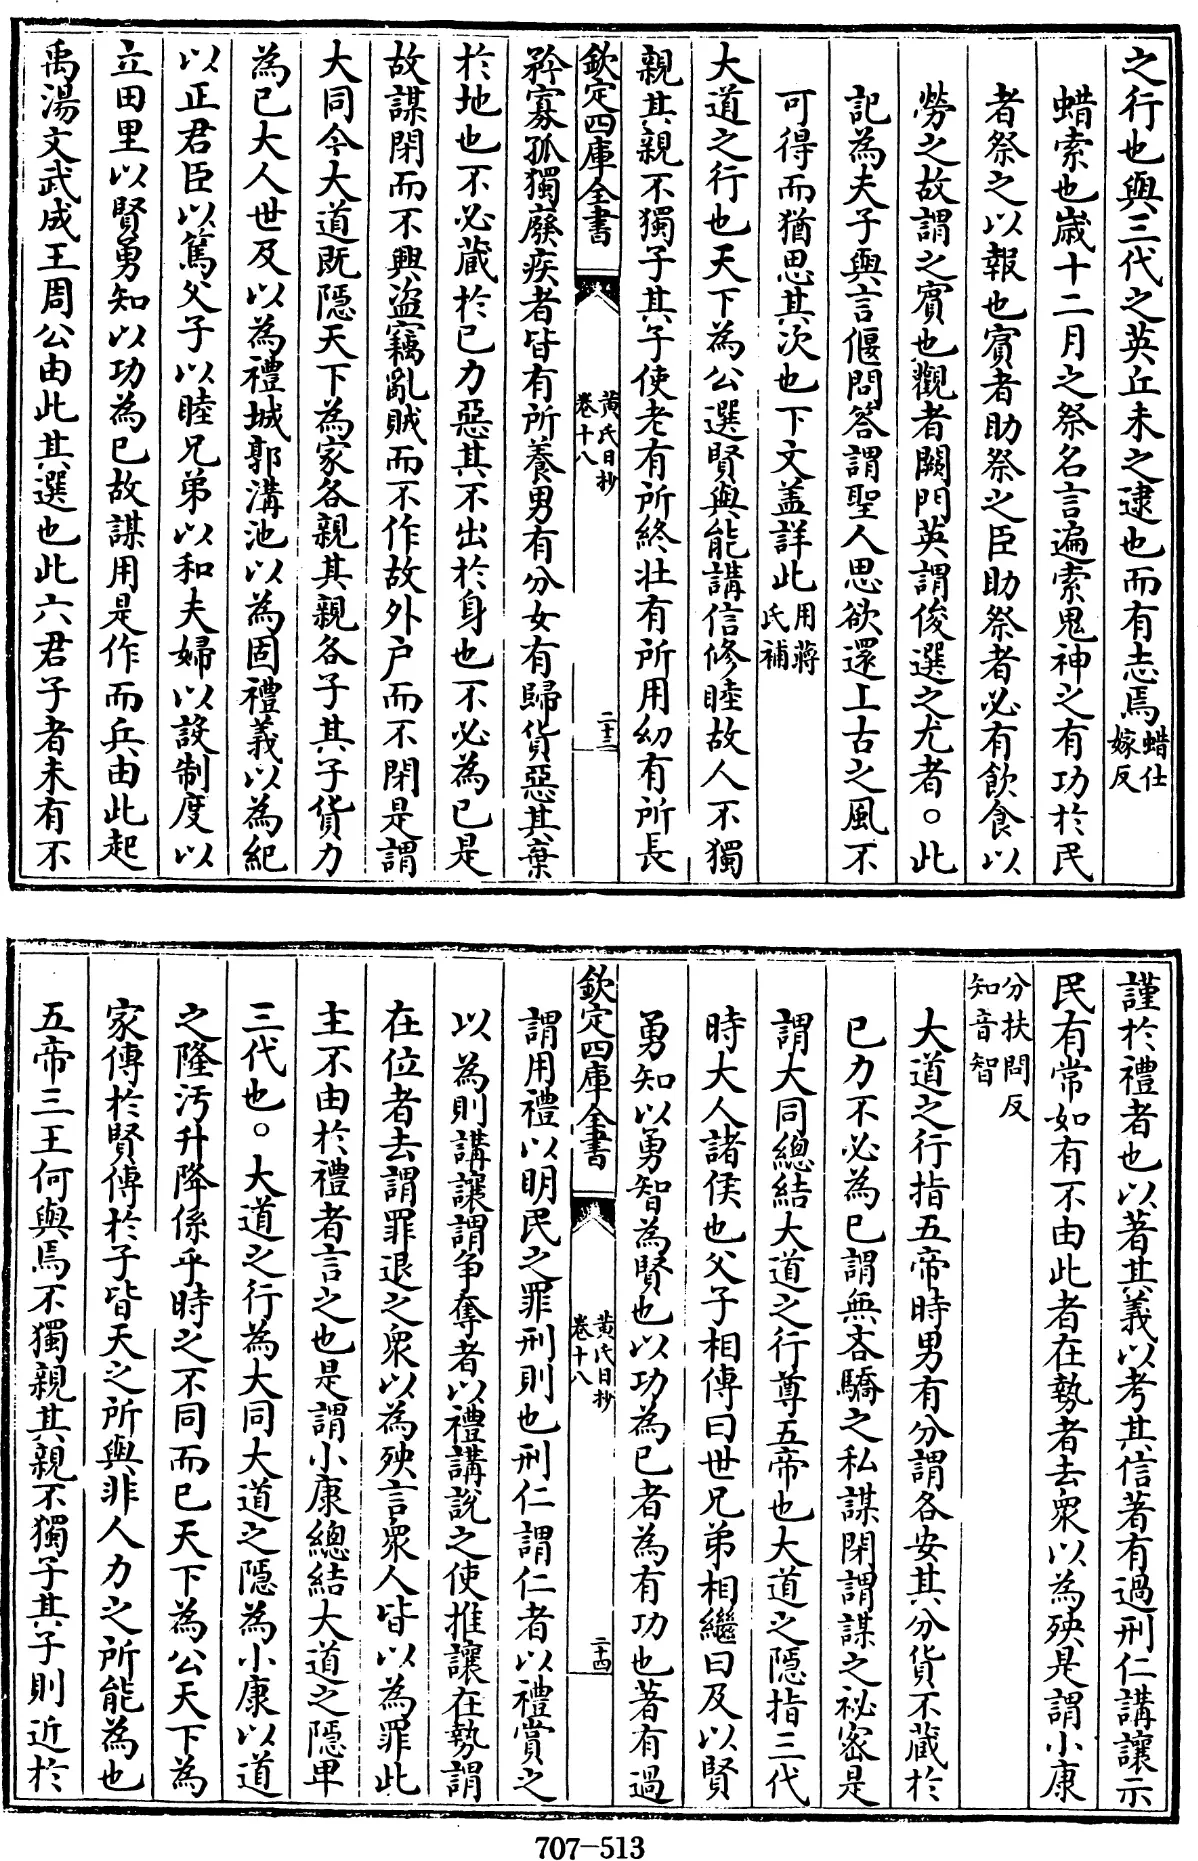 之行也與三代之英丘未之逮也而有志焉蜡仕嫁反
蜡索也歳十二月之祭名言遍索鬼神之有功於民
者祭之以報也賓者助祭之臣助祭者必有飲食以
勞之故謂之賓也觀者闕門英謂俊選之尤者○此
記為夫子與言偃問答謂聖人思欲還上古之風不
可得而猶思其次也下文盖詳此用蔣氏補
大道之行也天下為公選賢與能講信修睦故人不獨
親其親不獨子其子使老有所終壮有所用幼有所長
欽定四庫全書 黄氏日抄卷十八 二十三
矜寡孤獨廢疾者皆有所養男有分女有歸貨惡其棄
於地也不必藏於己力惡其不出於身也不必為己是
故謀閉而不興盗竊亂賊而不作故外户而不閉是謂
大同今大道既隱天下為家各親其親各子其子貨力
為己大人世及以為禮城郭溝池以為固禮義以為紀
以正君臣以篤父子以睦兄弟以和夫婦以設制度以
立田里以賢勇知以功為己故謀用是作而兵由此起
禹湯文武成王周公由此其選也此六君子者未有不
謹於禮者也以著其義以考其信著有過刑仁講讓示
民有常如有不由此者在埶者去衆以為殃是謂小康
分扶問反知音智
大道之行指五帝時男有分謂各安其分貨不藏於
己力不必為己謂無吝驕之私謀閉謂謀之祕宻是
謂大同總結大道之行尊五帝也大道之隱指三代
時大人諸侯也父子相傳曰世兄弟相繼曰及以賢
勇知以勇智為賢也以功為己者為有功也著有過
欽定四庫全書 黄氏日抄卷十八 二十四
謂用禮以明民之罪刑則也刑仁謂仁者以禮賞之
以為則講讓謂争奪者以禮講說之使推讓在埶謂
在位者去謂罪退之衆以為殃言衆人皆以為罪此
主不由於禮者言之也是謂小康總結大道之隱卑
三代也○大道之行為大同大道之隱為小康以道
之隆汚升降係乎時之不同而已天下為公天下為
家傳於賢傳於子皆天之所與非人力之所能為也
五帝三王何與焉不獨親其親不獨子其子則近於
707-513